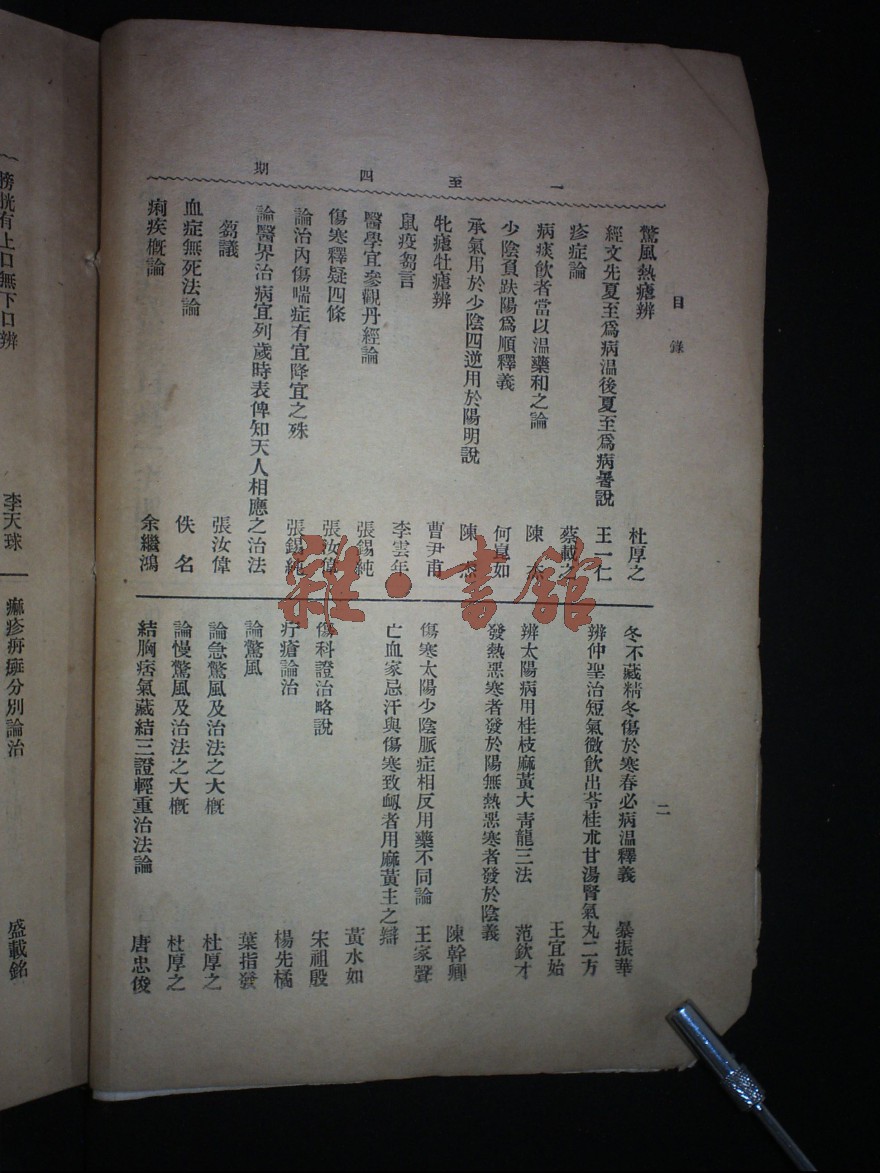 目錄
二
一至四期
驚風熱瘧辨 杜厚之
經文先夏至爲病温後夏至爲病暑說 王一仁
疹症論 蔡載之
病痰飲者當以温藥和之論 陳杰
少陰負趺陽爲順釋義 何崑如
承氣用於少陰四逆用於陽明說 陳杰
牝瘧牡瘧辨 曹尹甫
鼠疫芻言 李雲年
醫學宜參觀丹經論 張錫純
傷寒釋疑四條 張汝偉
論治內傷喘症有宜降宜之殊 張錫純
論醫界治病宜列歲時表俾知天人相應之治法
芻議 張汝偉
血症無死法論 佚名
痢疾槪論 余繼鴻
冬不藏精冬傷於寒春必病温釋義 暴振華
辨仲聖治短氣微飲出苓桂朮甘湯腎氣丸二方
王宜始
辨太陽病用桂枝麻黃大靑龍三法 范欽才
發熱惡寒者發於陽無熱惡寒者發於陰義
陳幹卿
傷寒太陽少陰脈症相反用藥不同論 王家聲
亡血家忌汗與傷寒致衄者用麻黃主之辯
黃水如
傷科證治略說 宋祖殷
疔瘡論治 楊先橘
論驚風 葉指發
論急驚風及治法之大槪 杜厚之
論慢驚風及治法之大槪 杜厚之
結胸痞氣藏結三證輕重治法論 唐忠俊
膀胱有上口無下口辨 李天球
痲疹㾦斑分別論治 盛載銘
雜·書館